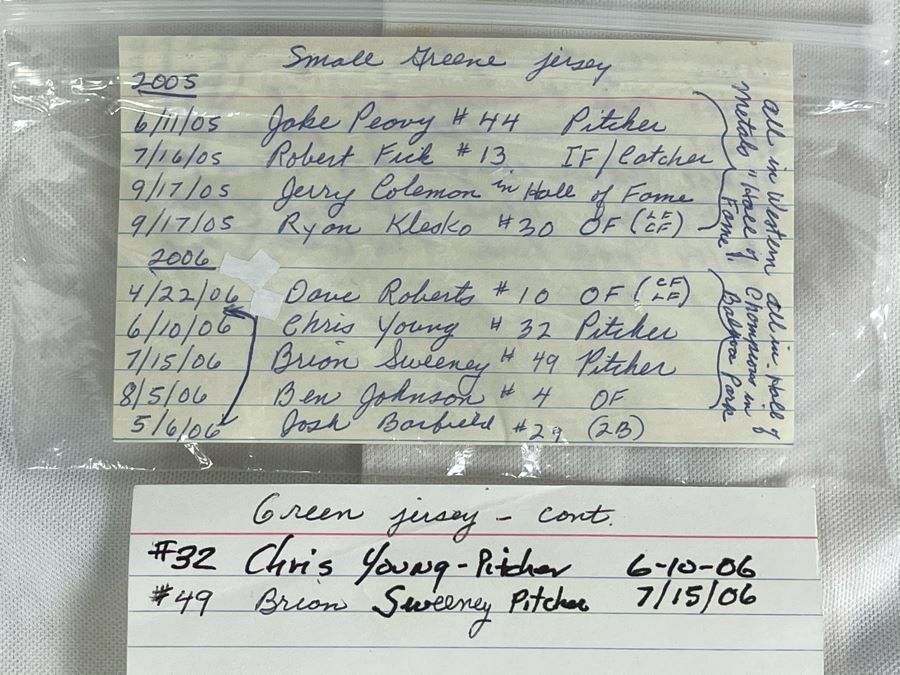 Small Greene jersey
2005
6/11/05 Jake Peavy #44 Pitcher
7/16/05 Robert Fick #13 IF/Catcher
9/17/05 Jerry Coleman in Hall of Fame
9/17/05 Ryan Klesko #30 OF (LF CF)
all in Western
Metals "Hall of
Fame"
2006
4/22/06 Dave Roberts #10 OF (CF LF)
6/10/06 Chris Young #32 Pitcher
7/15/06 Brian Sweeney #49 Pitcher
8/5/06 Ben Johnson #4 OF
5/6/06 Josh Barfield #29 (2B)
all in Hall of
Champions in
Balboa Park
Green jersey - cont.
#32 Chris Young - Pitcher 6-10-06
#49 Brian Sweeney Pitcher 7/15/06